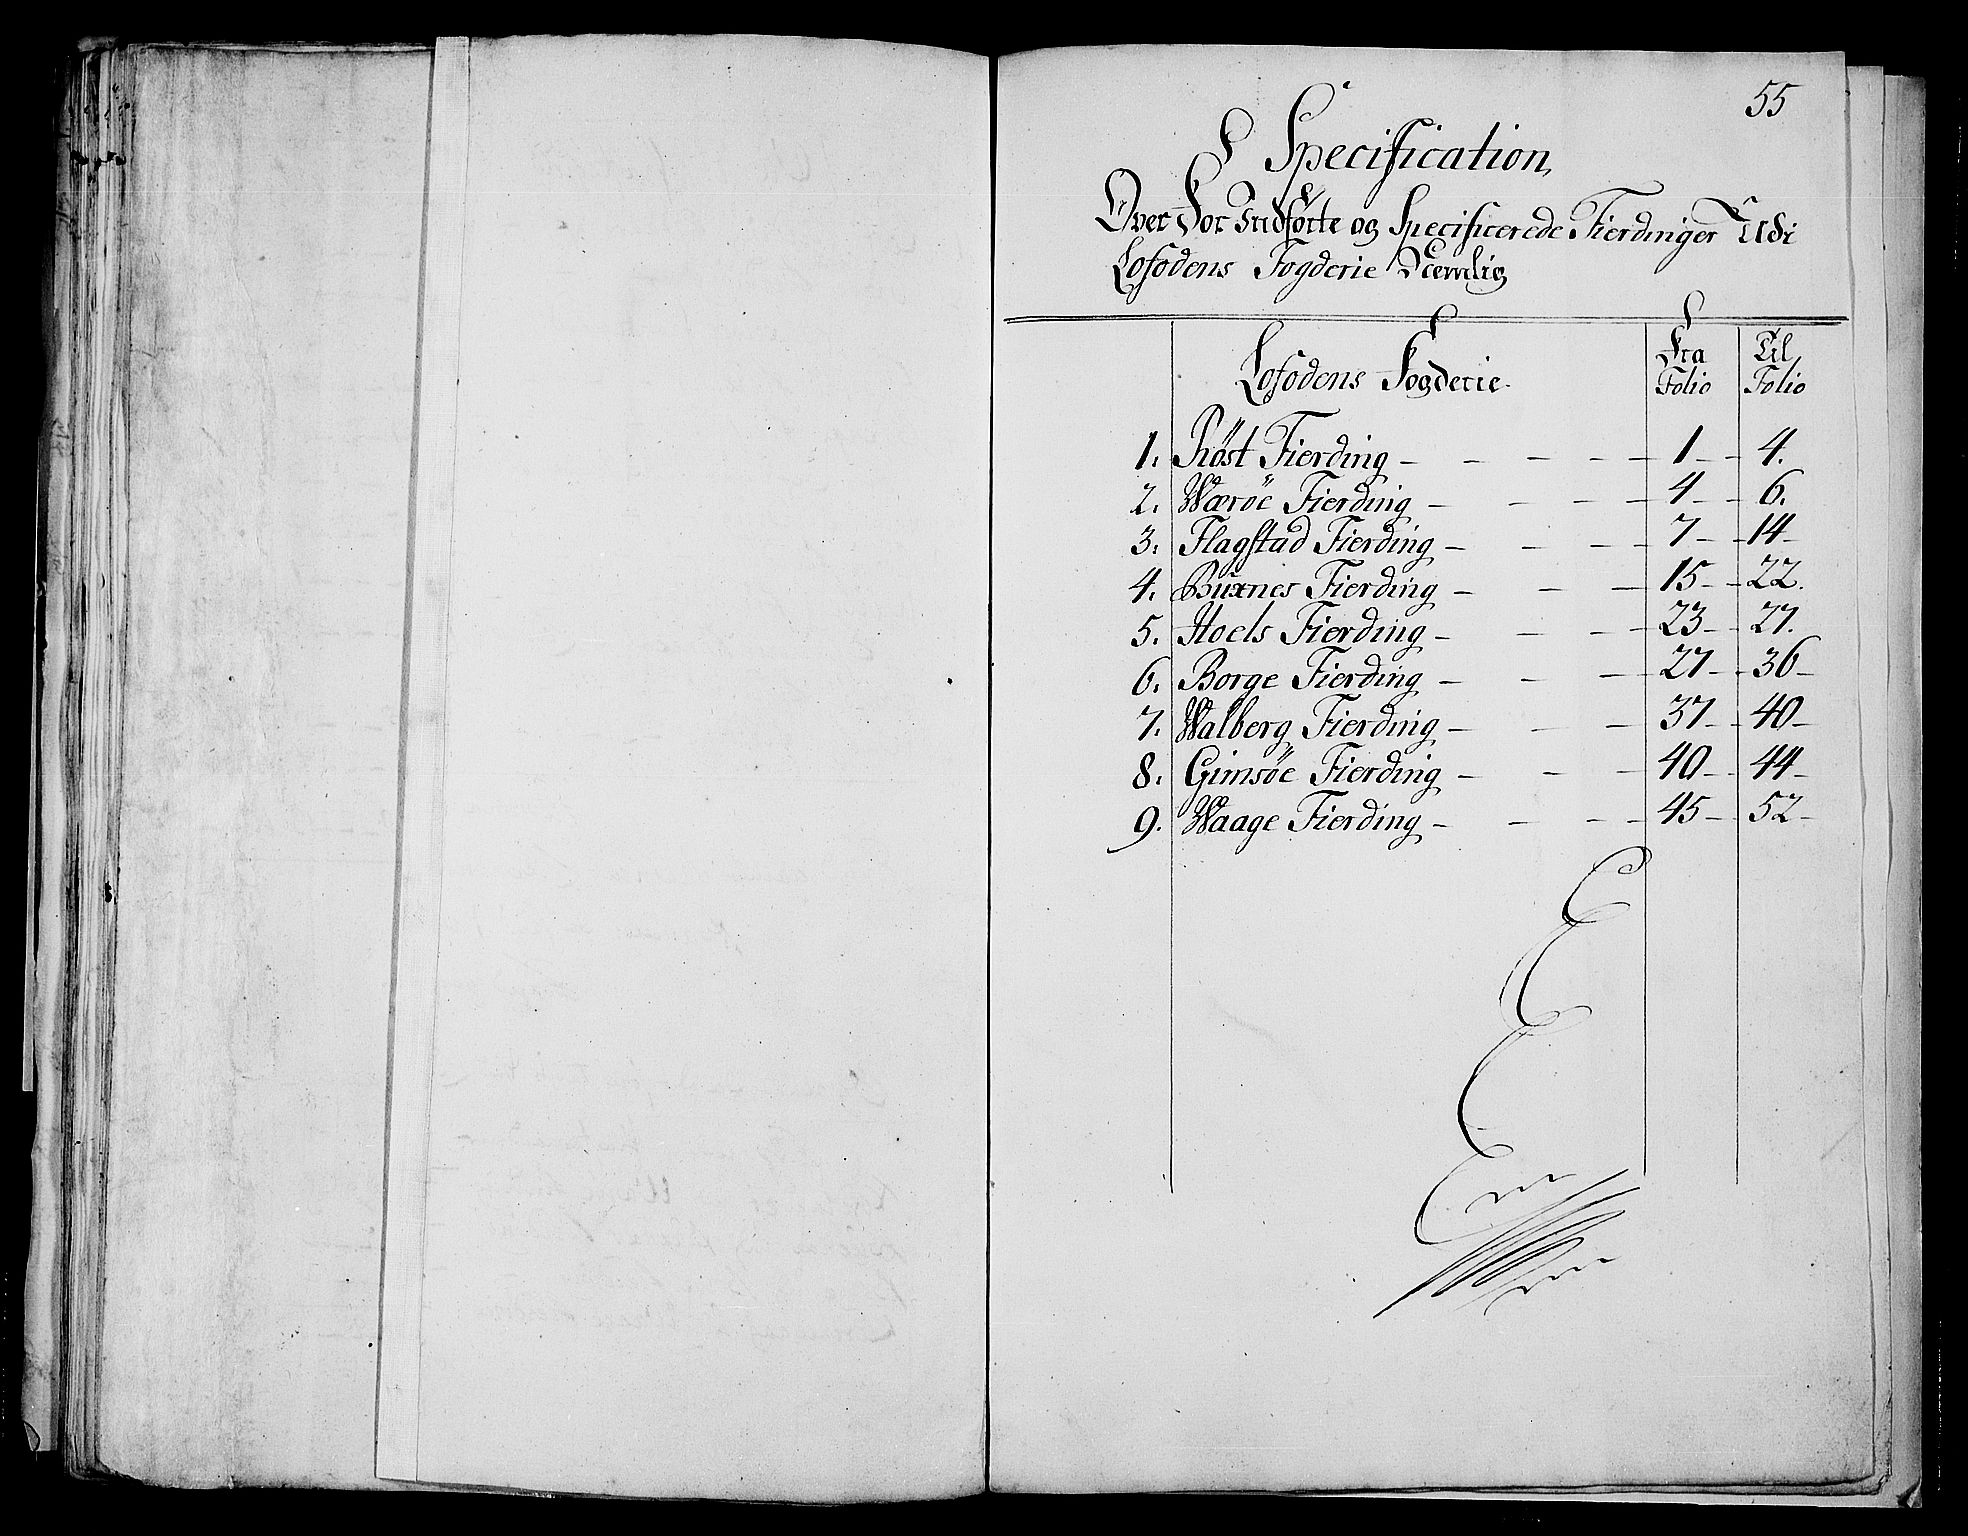 55
Specification
Over For Indførte og Specificerede Fierdinger Udi
Lofodens Fogderie Nemlig
Lofodens Fogderie. Fra Folio Til Folio
1. Röst Fierding — — — — — 1 — 4.
2. Wæröe Fierding — — — — 4 — 6.
3. Flagstad Fierding — — — — 7 — 14 —
4. Buxnes Fierding — — — 15 — 22.
5. Hoels Fierding — — — — 23 — 27.
6. Borge Fierding — — — 27 — 36 —
7. Walberg Fierding — — — 37 — 40 —
8. Gimsöe Fierding — — — 40 — 44 —
9. Waage Fierding — — — — 45 — 52 —